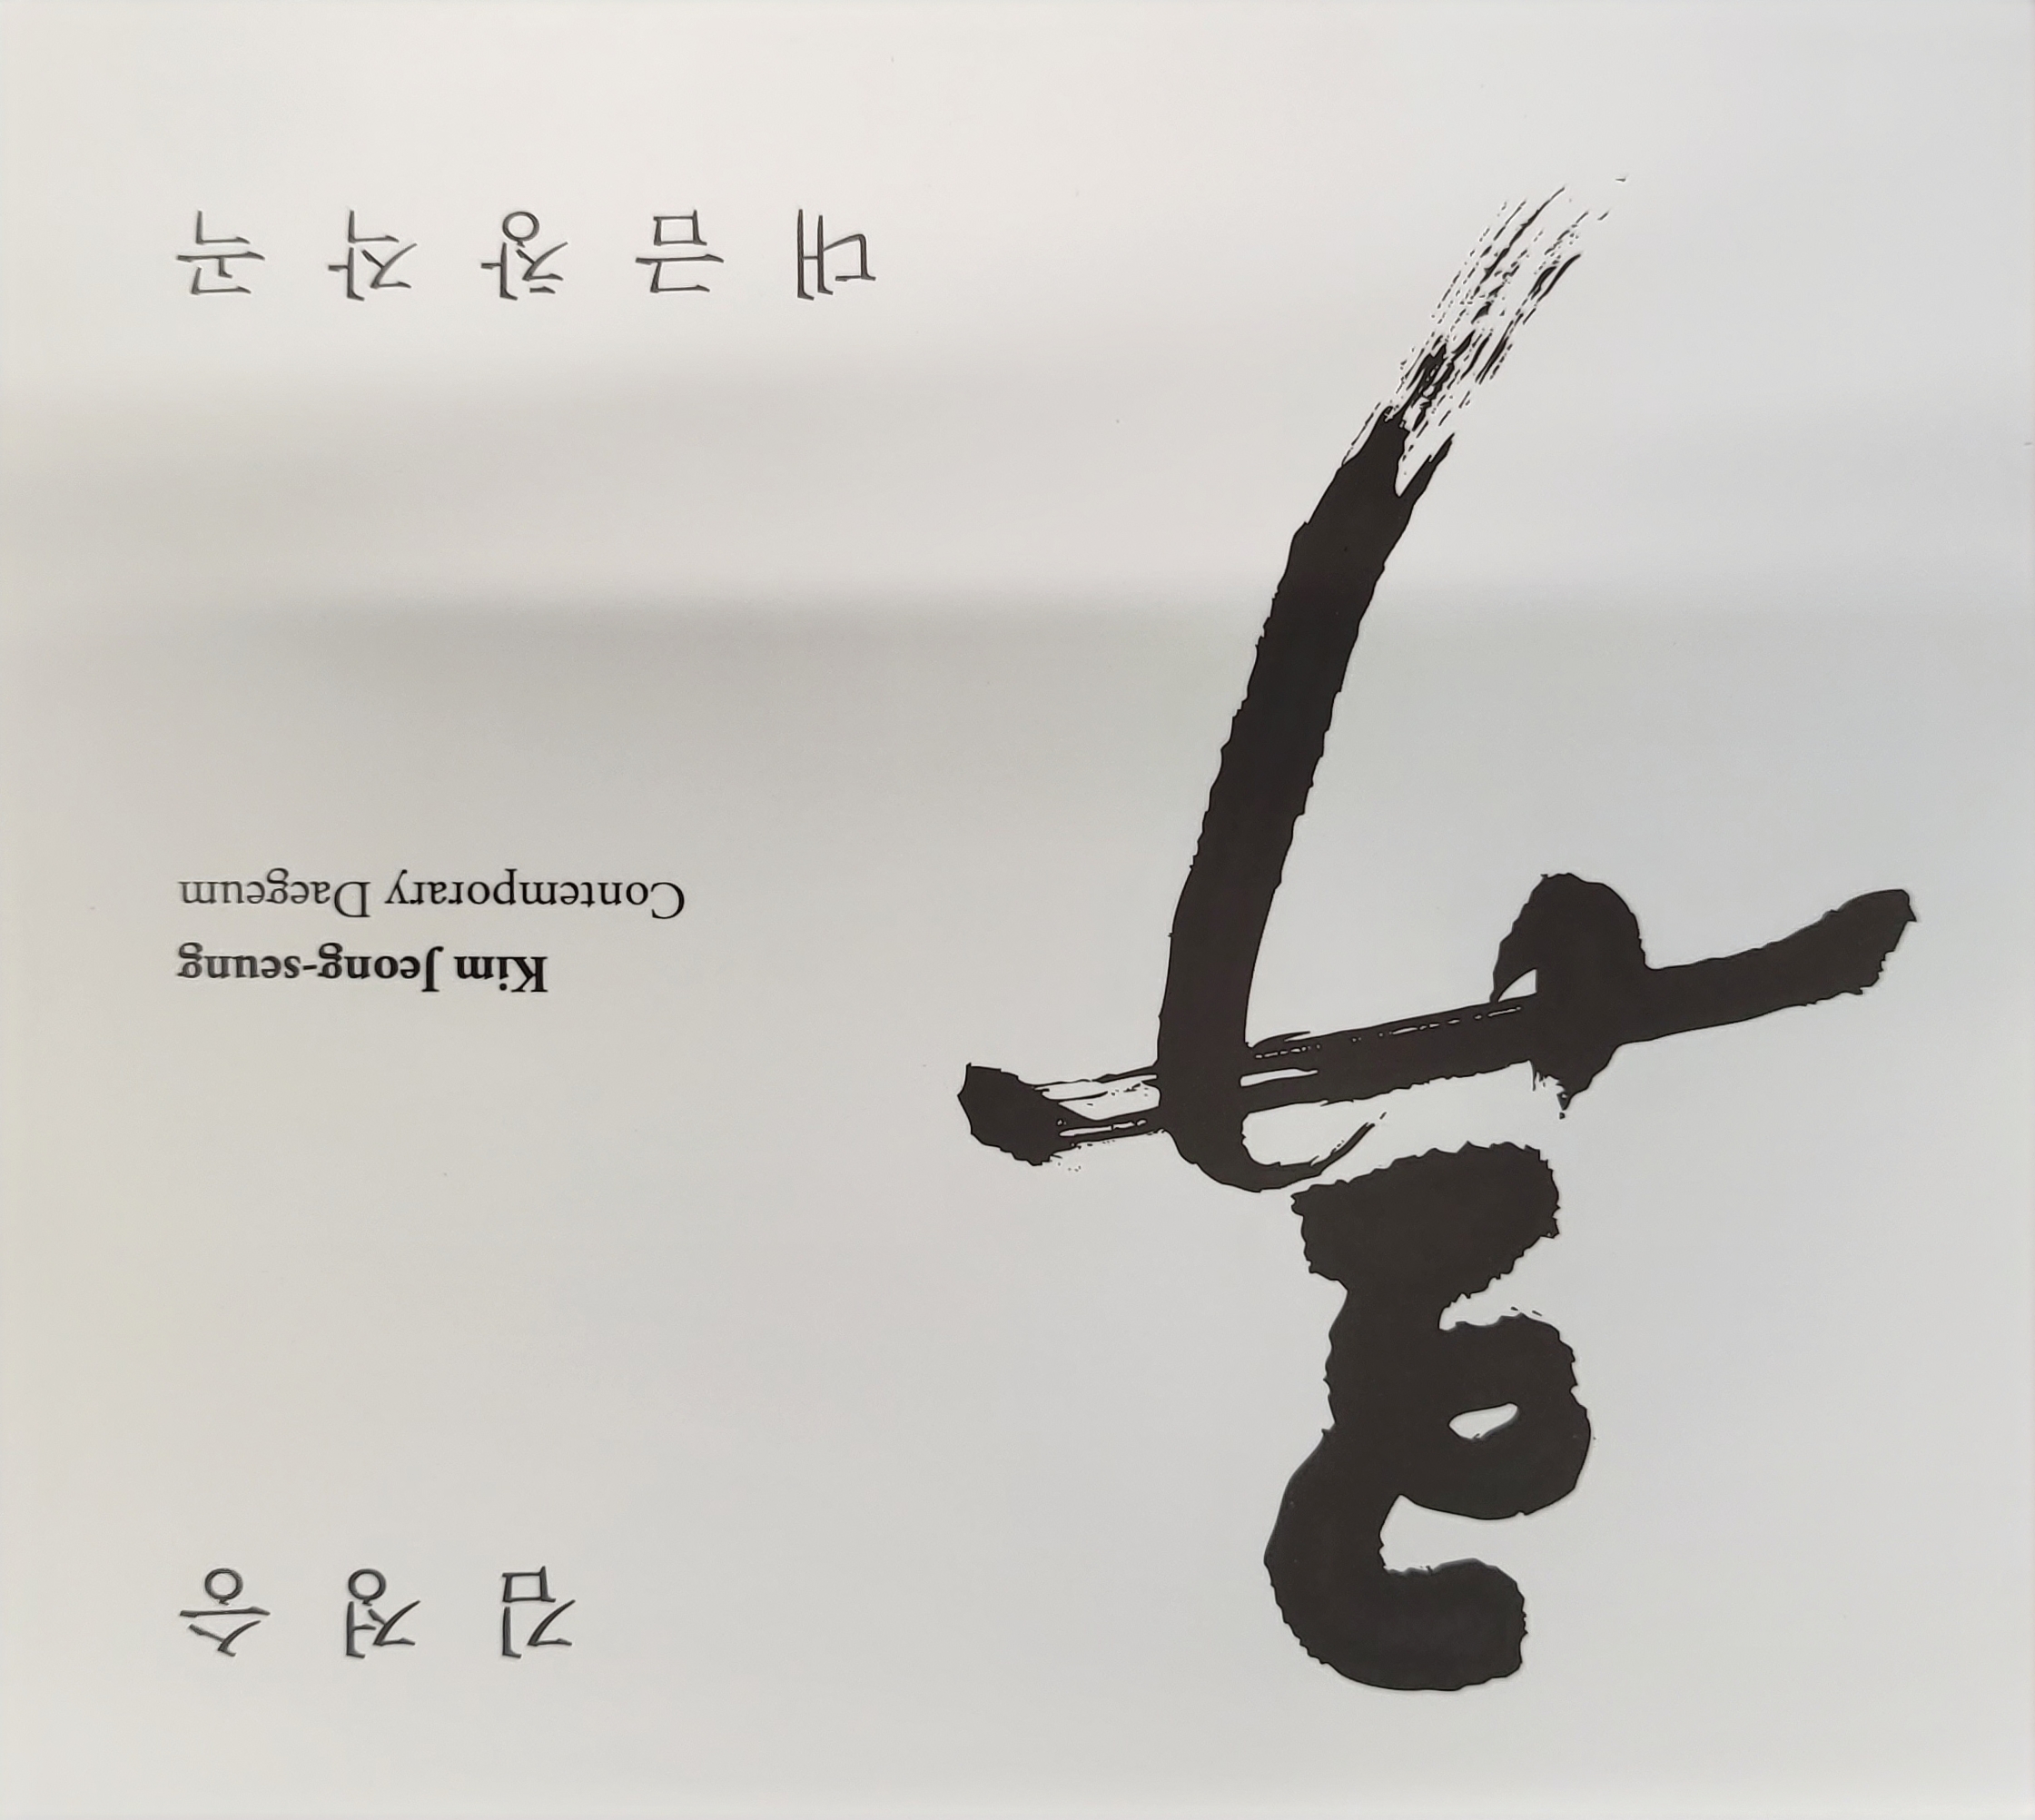 김 정 승
Kim Jeong-seung
Contemporary Daegeum
대 금 창 작 곡